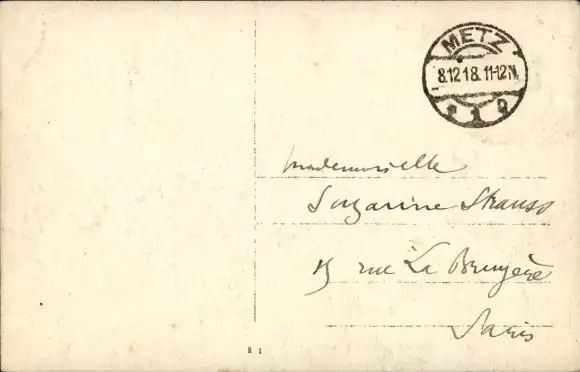 METZ
8.12.18. 11-12 N.
* 1 g
mademoiselle
Suzanne Strauss
15 rue La Bruyère
Paris
8 1